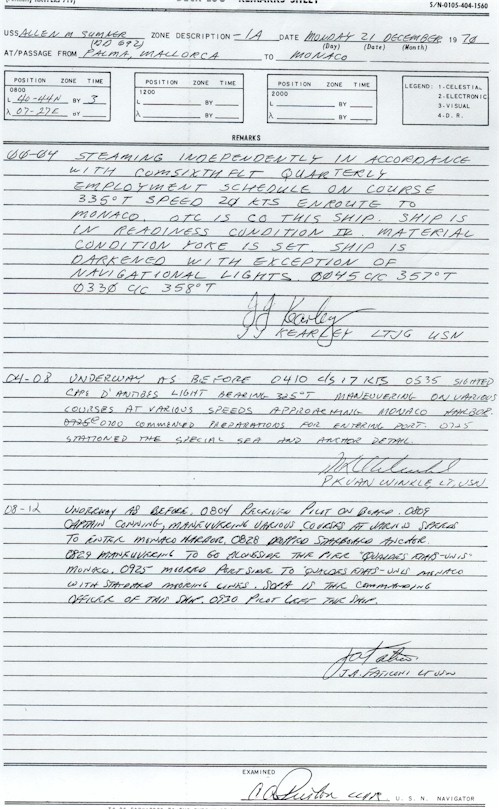 REMARKS SHEET
S/N-0105-404-1560
USS ALLEN M SUMNER ZONE DESCRIPTION -1A DATE MONDAY 21 DECEMBER 1970
(DD 692) (Day) (Date) (Month)
AT/PASSAGE FROM PALMA, MALLORCA TO MONACO
POSITION ZONE TIME
0800
L 40-44N BY 3
λ 07-27E BY
POSITION ZONE TIME
1200
L BY
λ BY
POSITION ZONE TIME
2000
L BY
λ BY
LEGEND: 1-CELESTIAL
2-ELECTRONIC
3-VISUAL
4-D. R.
REMARKS
00-04 STEAMING INDEPENDENTLY IN ACCORDANCE
WITH COMSIXTHFLT QUARTERLY
EMPLOYMENT SCHEDULE ON COURSE
335°T SPEED 20 KTS ENROUTE TO
MONACO. OTC IS CO THIS SHIP. SHIP IS
IN READINESS CONDITION IV. MATERIAL
CONDITION YOKE IS SET. SHIP IS
DARKENED WITH EXCEPTION OF
NAVIGATIONAL LIGHTS. 0045 C/C 357°T
0330 C/C 358°T
JJ Kearley
JJ KEARLEY LTJG USN
04-08 UNDERWAY AS BEFORE 0410 C/S 17 KTS 0535 SIGHTED
CAPE D'ANTIBES LIGHT BEARING 325°T MANEUVERING ON VARIOUS
COURSES AT VARIOUS SPEEDS APPROACHING MONACO HARBOR.
0700 COMMENCED PREPARATIONS FOR ENTERING PORT. 0725
STATIONED THE SPECIAL SEA AND ANCHOR DETAIL.
P.K. VAN WINKLE LT, USN
08-12 UNDERWAY AS BEFORE. 0804 RECEIVED PILOT ON BOARD. 0809
CAPTAIN CONNING, MANEUVERING VARIOUS COURSES AT VARIOUS SPEEDS
TO ENTER MONACO HARBOR. 0828 DROPPED STARBOARD ANCHOR.
0829 MANEUVERING TO GO ALONGSIDE THE PIER "QUAI DES ETATS-UNIS"
MONACO. 0925 MOORED PORT SIDE TO "QUAI DES ETATS-UNIS MONACO
WITH STANDARD MOORING LINES. SOPA IS THE COMMANDING
OFFICER OF THIS SHIP. 0930 PILOT LEFT THE SHIP.
LT USN
EXAMINED
U. S. N. NAVIGATOR